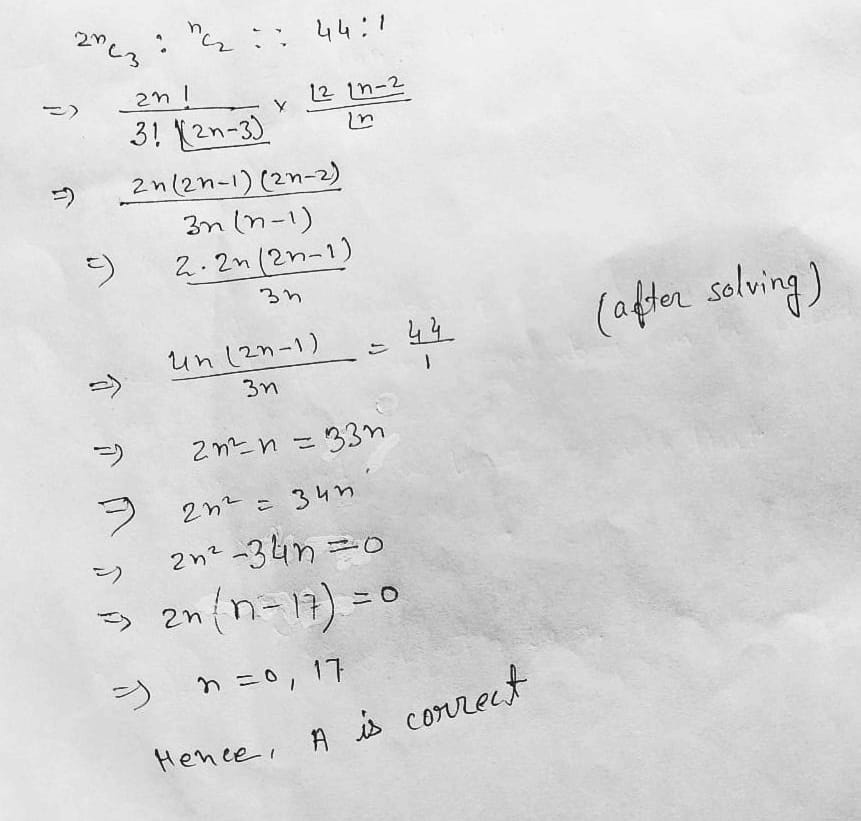 2nC3 : nC2 :: 44:1
=> 2n! / 3! (2n-3) × ⌊2 ⌊n-2 / ⌊n
=> 2n(2n-1)(2n-2) / 3n(n-1)
=> 2.2n(2n-1) / 3n
(after solving)
=> 4n(2n-1) / 3n = 44 / 1
=> 2n²-n = 33n
=> 2n² = 34n
=> 2n²-34n=0
=> 2n(n-17)=0
=> n=0, 17
Hence, A is correct